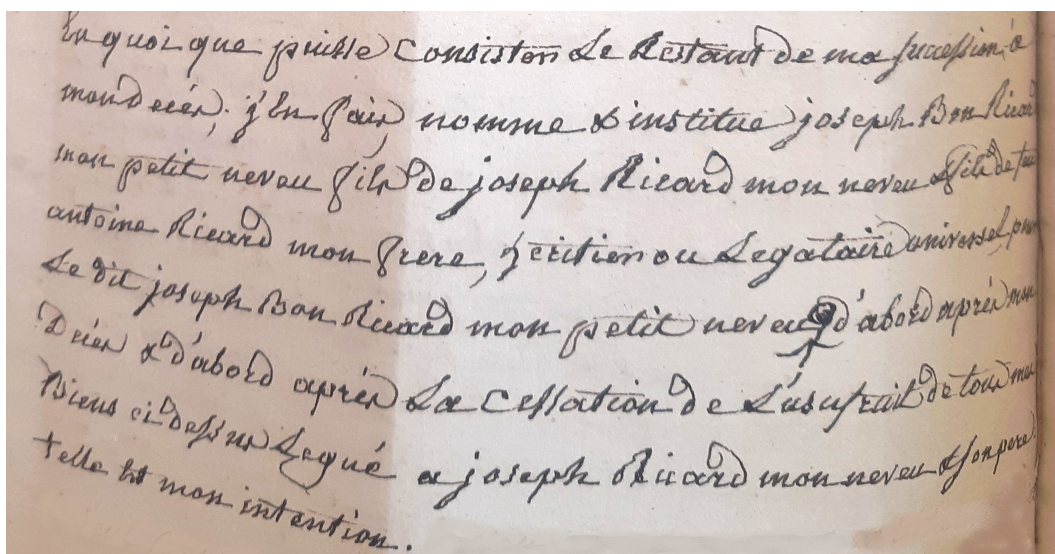 En quoi que puisse Consister Le Restant de ma succession, a
mon deces, j'En fais, nomme & institue joseph Bon Ricard
mon petit neveu fils de joseph Ricard mon neveu & fils de feu
antoine Ricard mon frere, heritier ou Legataire universel, pour
Le dit joseph Bon Ricard mon petit neveu d'abord après mon
Deces & d'abord après La Cessation de L'usufruit de tous mes
Biens ci dessus Legué a joseph Ricard mon neveu & son pere.
telle Est mon intention.